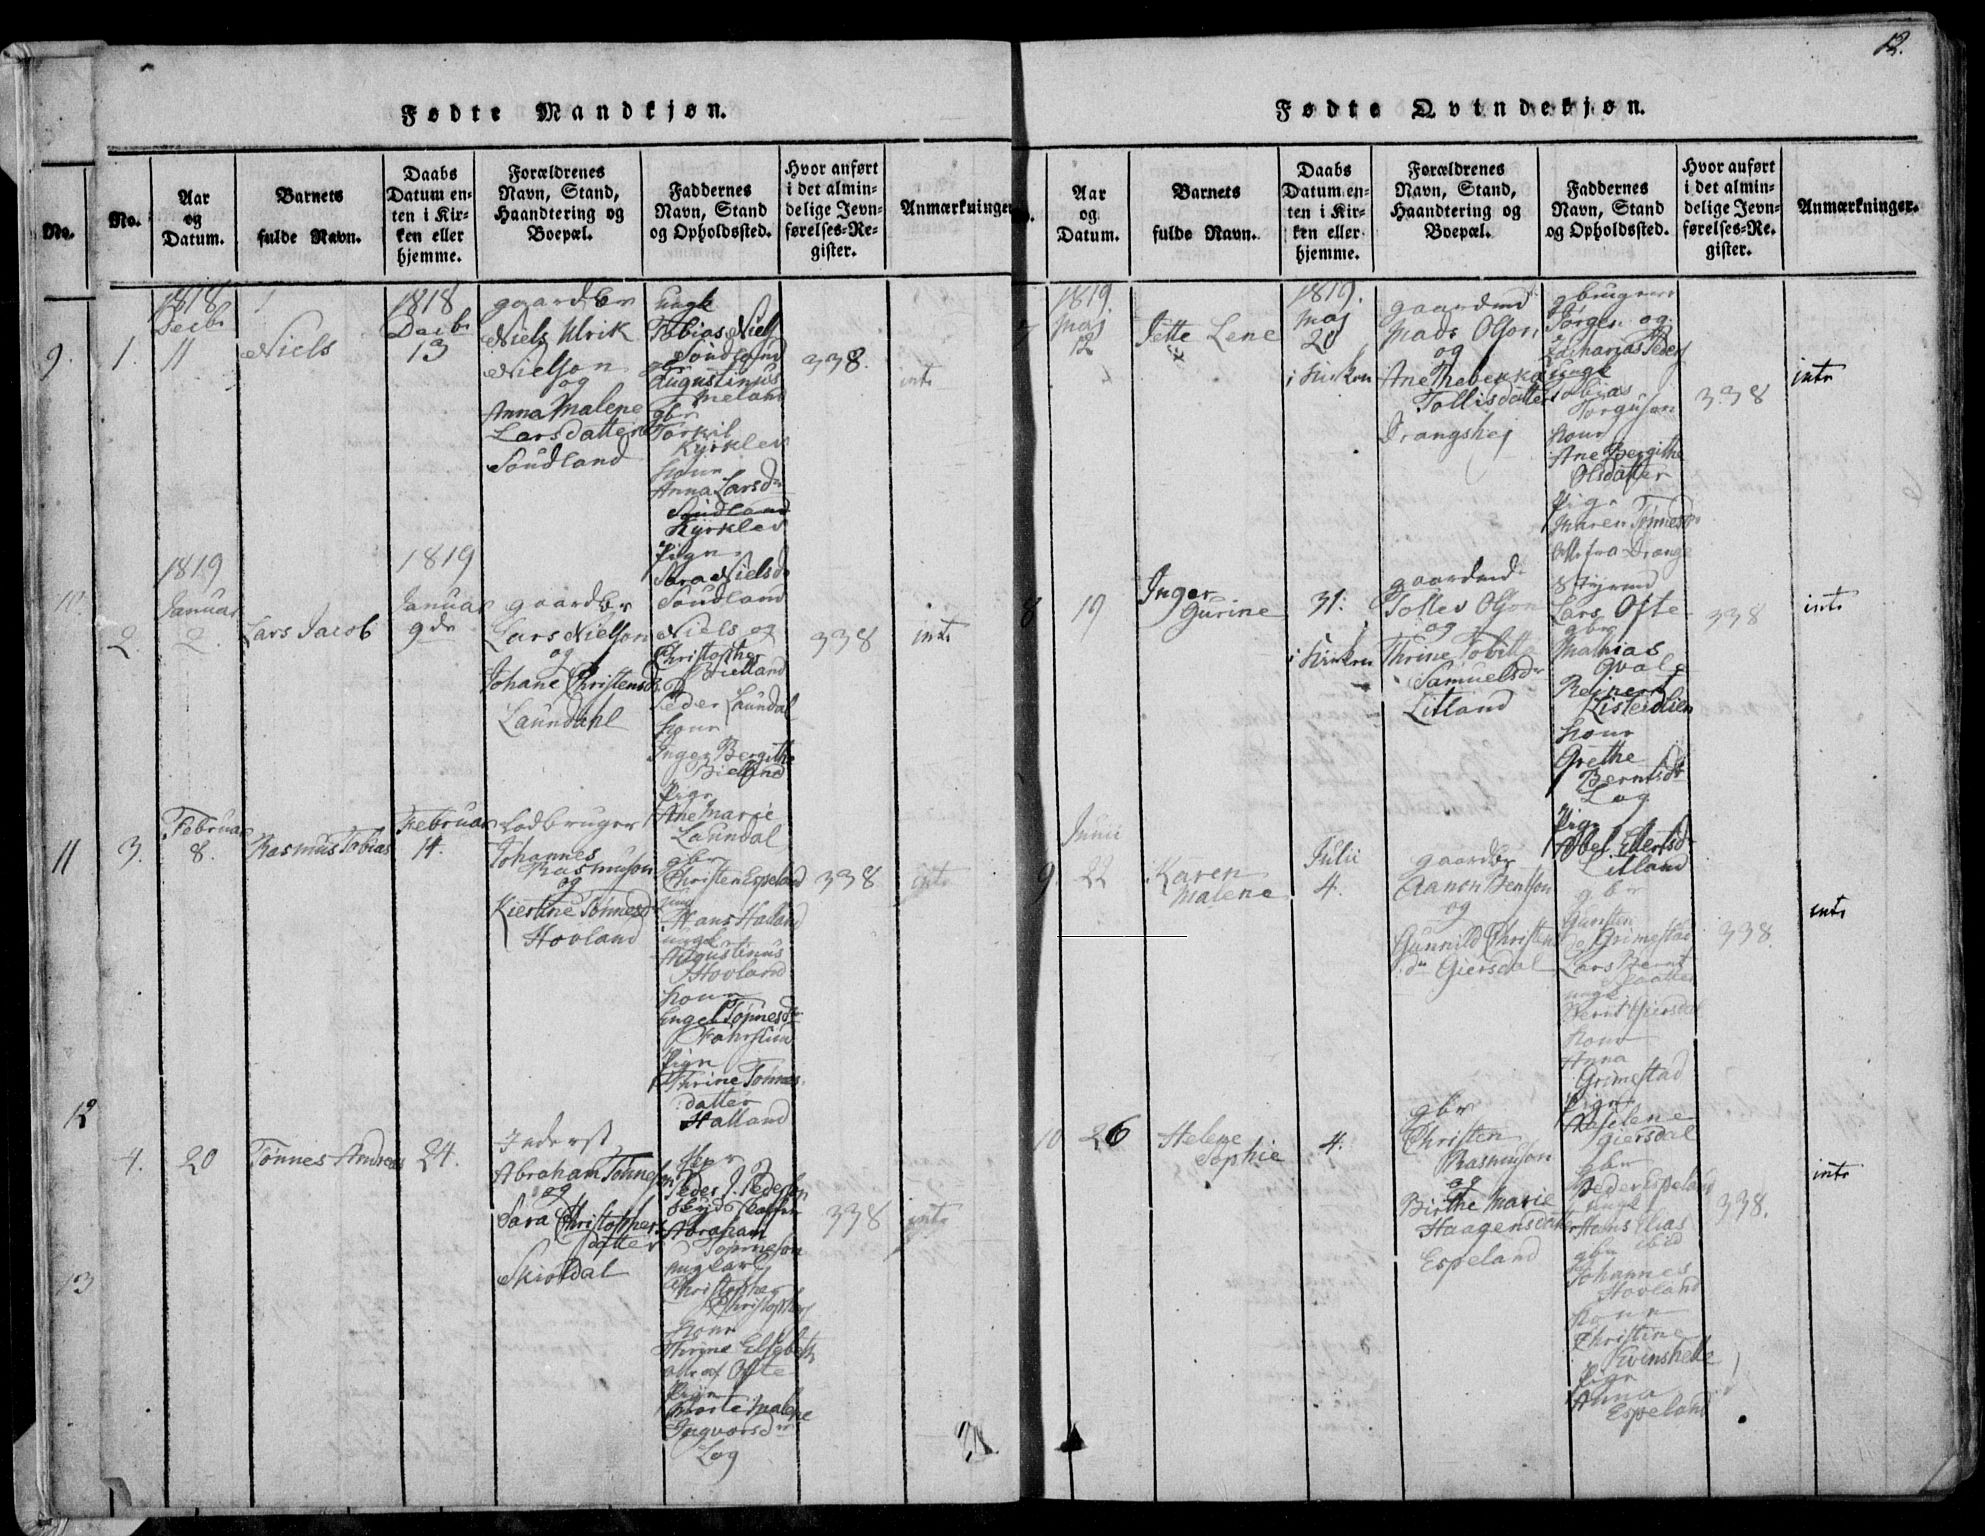 12.
Fødte Mandkjøn.
No.
No.
Aar
og
Datum.
Barnets
fulde Navn.
Daabs
Datum en-
ten i Kir-
ken eller
hjemme.
Forældrenes
Navn, Stand,
Haandtering og
Boepæl.
Faddernes
Navn, Stand
og Opholdssted.
Hvor anført
i det almin-
delige Jevn-
førelses-Re-
gister.
Anmærkninger
9.
1.
1818
Decbr
11
Niels
1818
Decbr
13
gaardbr
Niels Ulrik
Nielson
og
Anna Malene
Larsdatter
Soudland
Ungk
Tobias Niels
Soudland
gbr
Augustinus
Meland
gbr
Torkil
Kyrklev
konr
Anna Larsdr
Soudland
Kyrklev
Pigr
Sara Nielsdr
Soudland
338.
intr
10.
2
1819
Januar
2.
Lars Jacob
1819
Januar
9de
gaardbr
Lars Nielson
og
Johane Christensdr
Laundahl
Niels og
Christopher
Bielland
Peder Laundal
konr
Inger Bergithe
Bielland
Pigr
Ane Marie
Laundal
338
intr
11
3.
Februar
8.
Rasmus Tobias
Februar
14.
Lodbruger
Johannes
Rasmuson
og
Kierstine Tønnesdr
Hovland
gbr
Christen Espeland
Hans Halland
ungk
Augustinus
Hovland
konr
Engel Tønnesdr
Pigr
Thrine Tønnes
datter
Halland
338
intr
12
4.
20
Tønnes Andreas
24.
Inderst
Abraham Tønneson
og
Sara Christophers
datter
Skioldal
Peder J. Pederson
Abraham
Tønneson
Christopher
Christophers
konr
Elsebeth
Ofte
Pigr
Marte Malene
Ingvorsdr
Log
338
intr
13
Fødte Qvindekjøn.
Aar
og
Datum.
Barnets
fulde Navn.
Daabs
Datum en-
ten i Kir-
ken eller
hjemme.
Forældrenes
Navn, Stand,
Haandtering og
Boepæl.
Faddernes
Navn, Stand
og Opholdssted.
Hvor anført
i det almin-
delige Jevn-
førelses-Re-
gister.
Anmærkninger.
7
1819
Maj
12
Jette Lene
1819.
Maj
20
i Kirken
gaardmd
Mads Olson
og
Ane Thebekka
Tollisdatter
Drangshej
gbrugere
Torger og
Zacharias Peders
ungk
Tobias
Torguson
konr
Ane Bergithe
Olsdatter
Pigr
Maren Tønnesdr
alle fra Drange
338
intr
8
19
Inger
Gurine
31.
i Kirken
gaardmd
Tollev Olson
og
Thrine Tobitta
Samuelsdr
Litland
Lars Ofte
gbr
Mathias
Qvale
Reinert
konr
Grethe
Berntsdr
Log
Pigr
Abel Ellertsdr
Litland
338
intr
9.
Junii
22
Karen
Malene
Julii
4.
gaardbr
Aanon Bentson
og
Gunnild Christens
dr Giersdal
gbr
Grimestad
Lars Bernt
ungk
Bernt Giersdal
konr
Anna
Grimestad
Pigr
Helene
Giersdal
338.
intr
10
26
Helene
Sophie
4.
gbr
Christen
Rasmuson
og
Birthe Marie
Haagensdatter
Espeland
gbr
Peder Espeland
ungk
Hans Elias
gbr ibid
Johannes
Hovland
konr
Christine
Kvinshelle
Pigr
Anna
Espeland
338.
intr